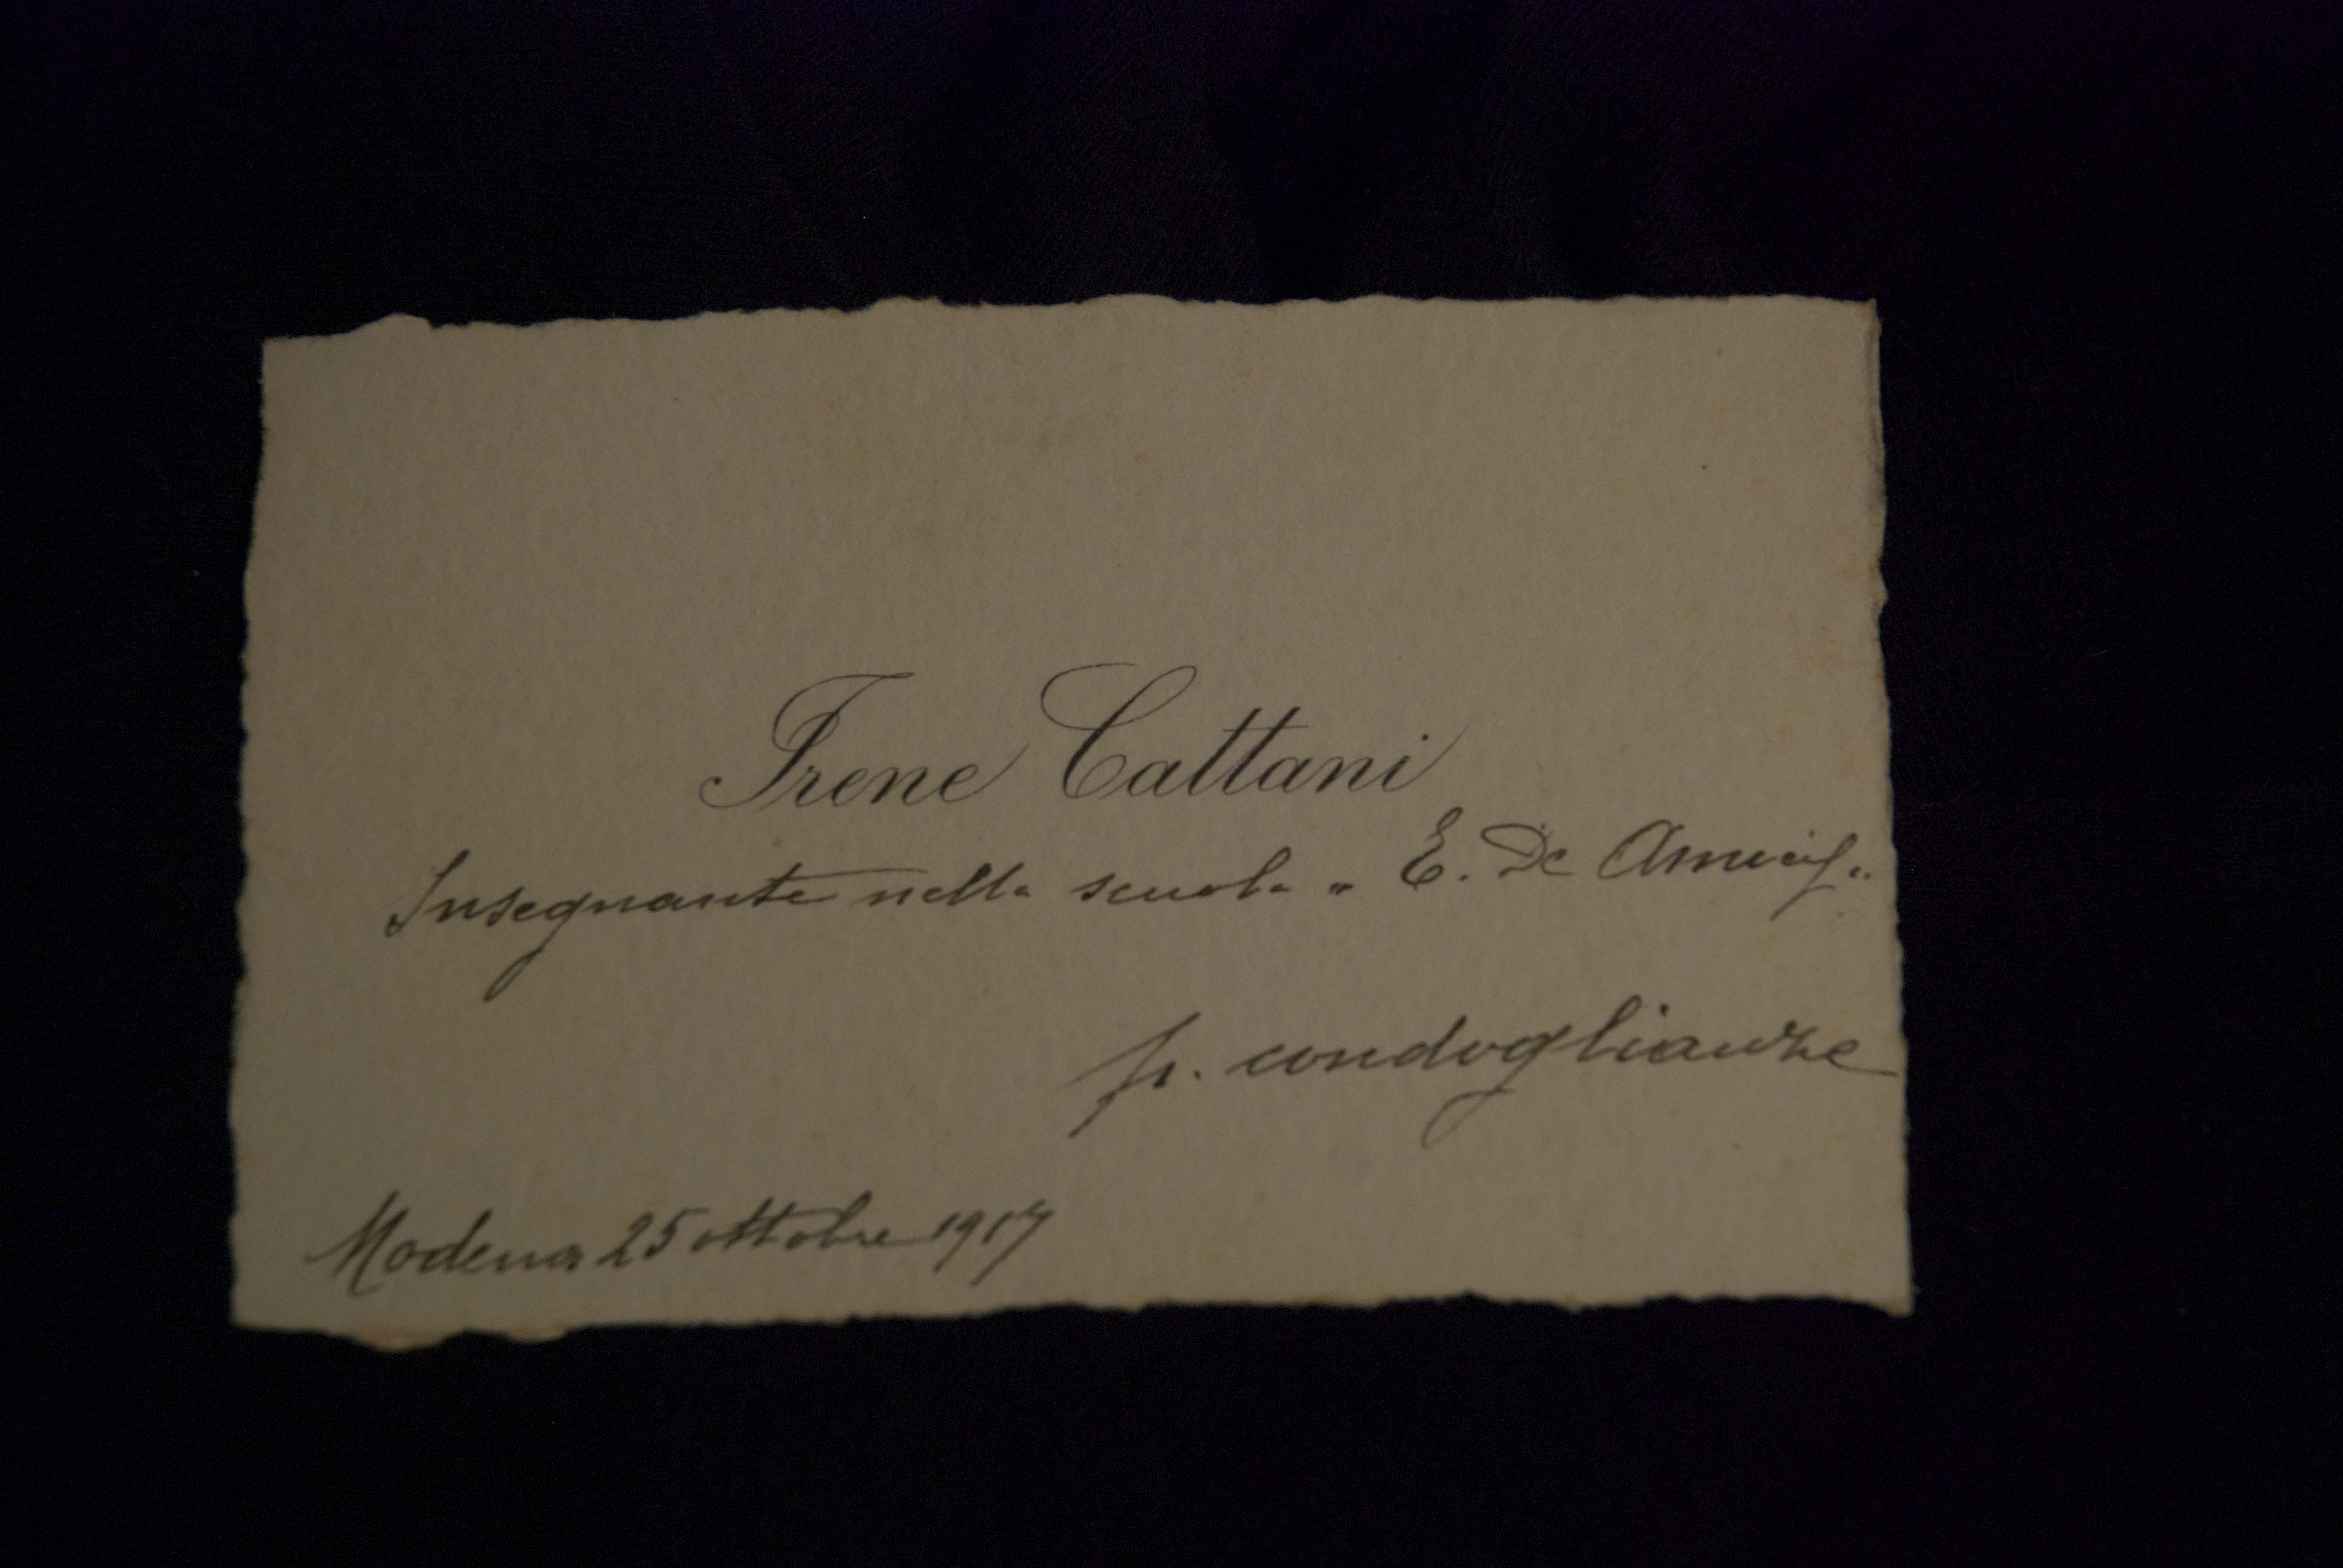 Irene Cattani
Insegnante nella scuola " E. De Amicis "
p. condoglianze
Modena 25 ottobre 1917